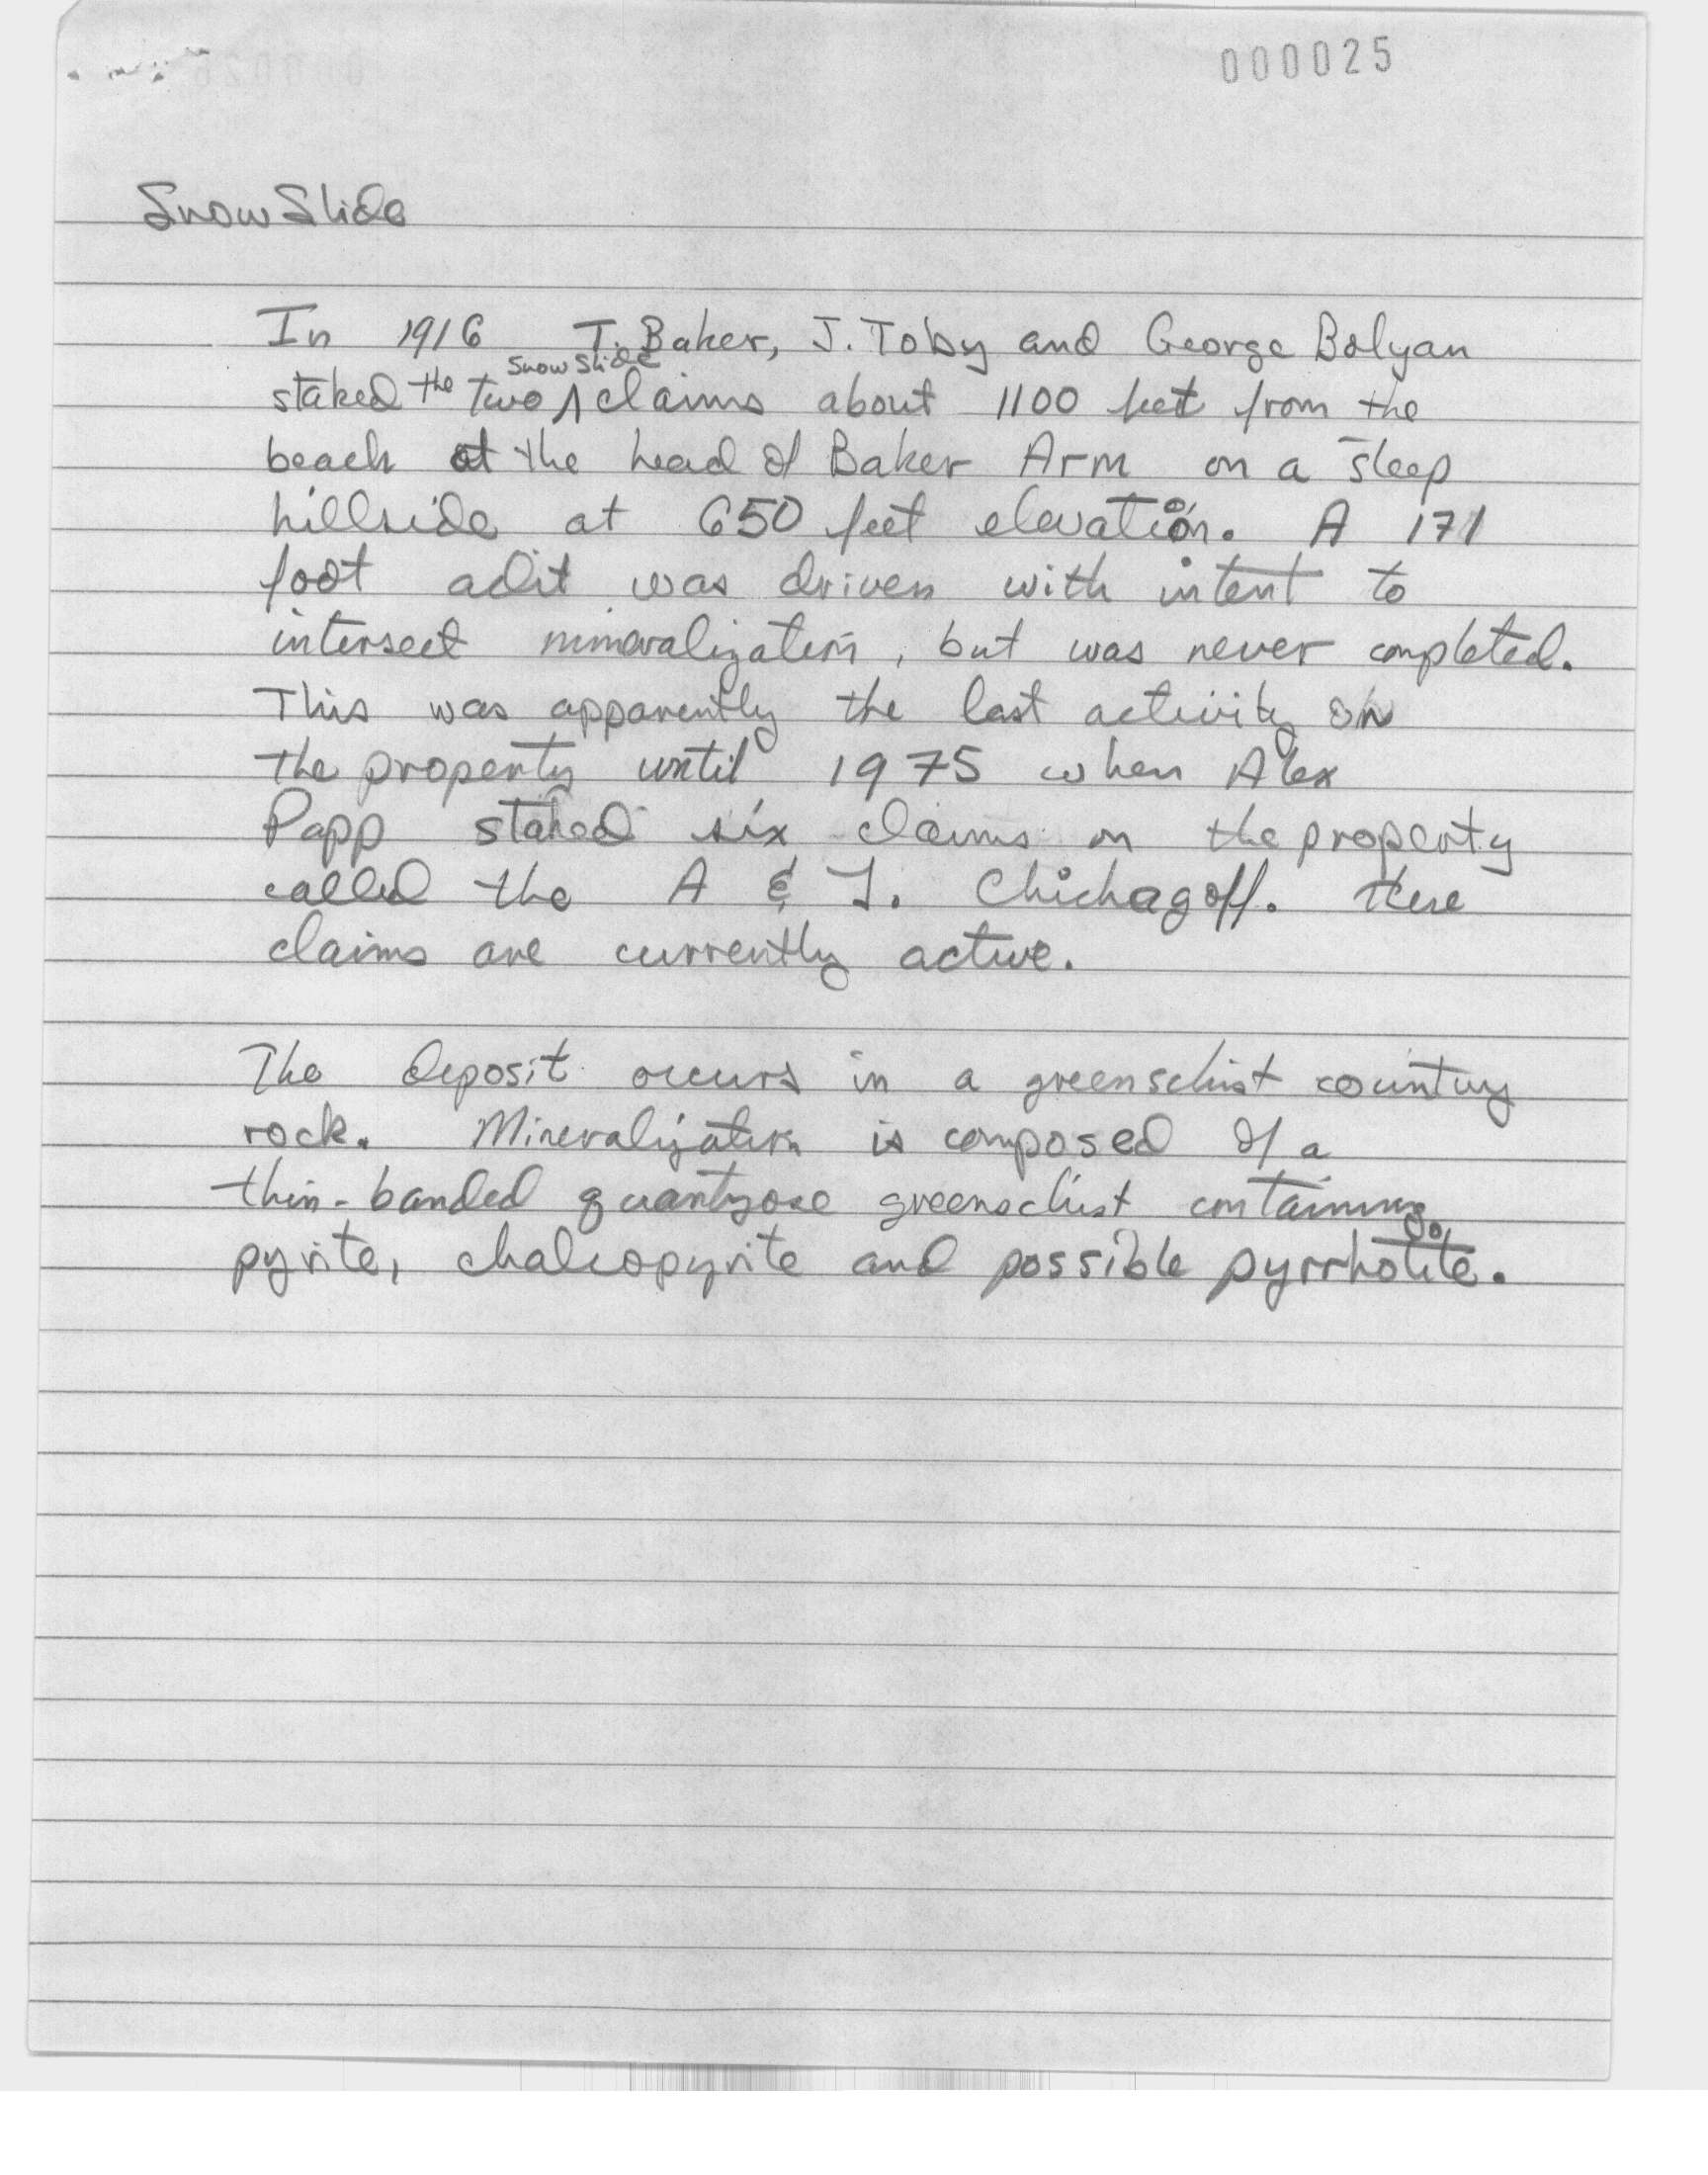 000025
Snow Slide
In 1916 T. Baker, J. Toby and George Bolyan
staked the two Snow Slide claims about 1100 feet from the
beach at the head of Baker Arm on a steep
hillside at 650 feet elevation. A 171
foot adit was driven with intent to
intersect mineralization, but was never completed.
This was apparently the last activity on
the property until 1975 when Alex
Papp staked six claims on the property
called the A & J. Chichagoff. These
claims are currently active.
The deposit occurs in a greenschist country
rock. Mineralization is composed of a
thin-banded quartzose greenschist containing
pyrite, chalcopyrite and possible pyrrhotite.